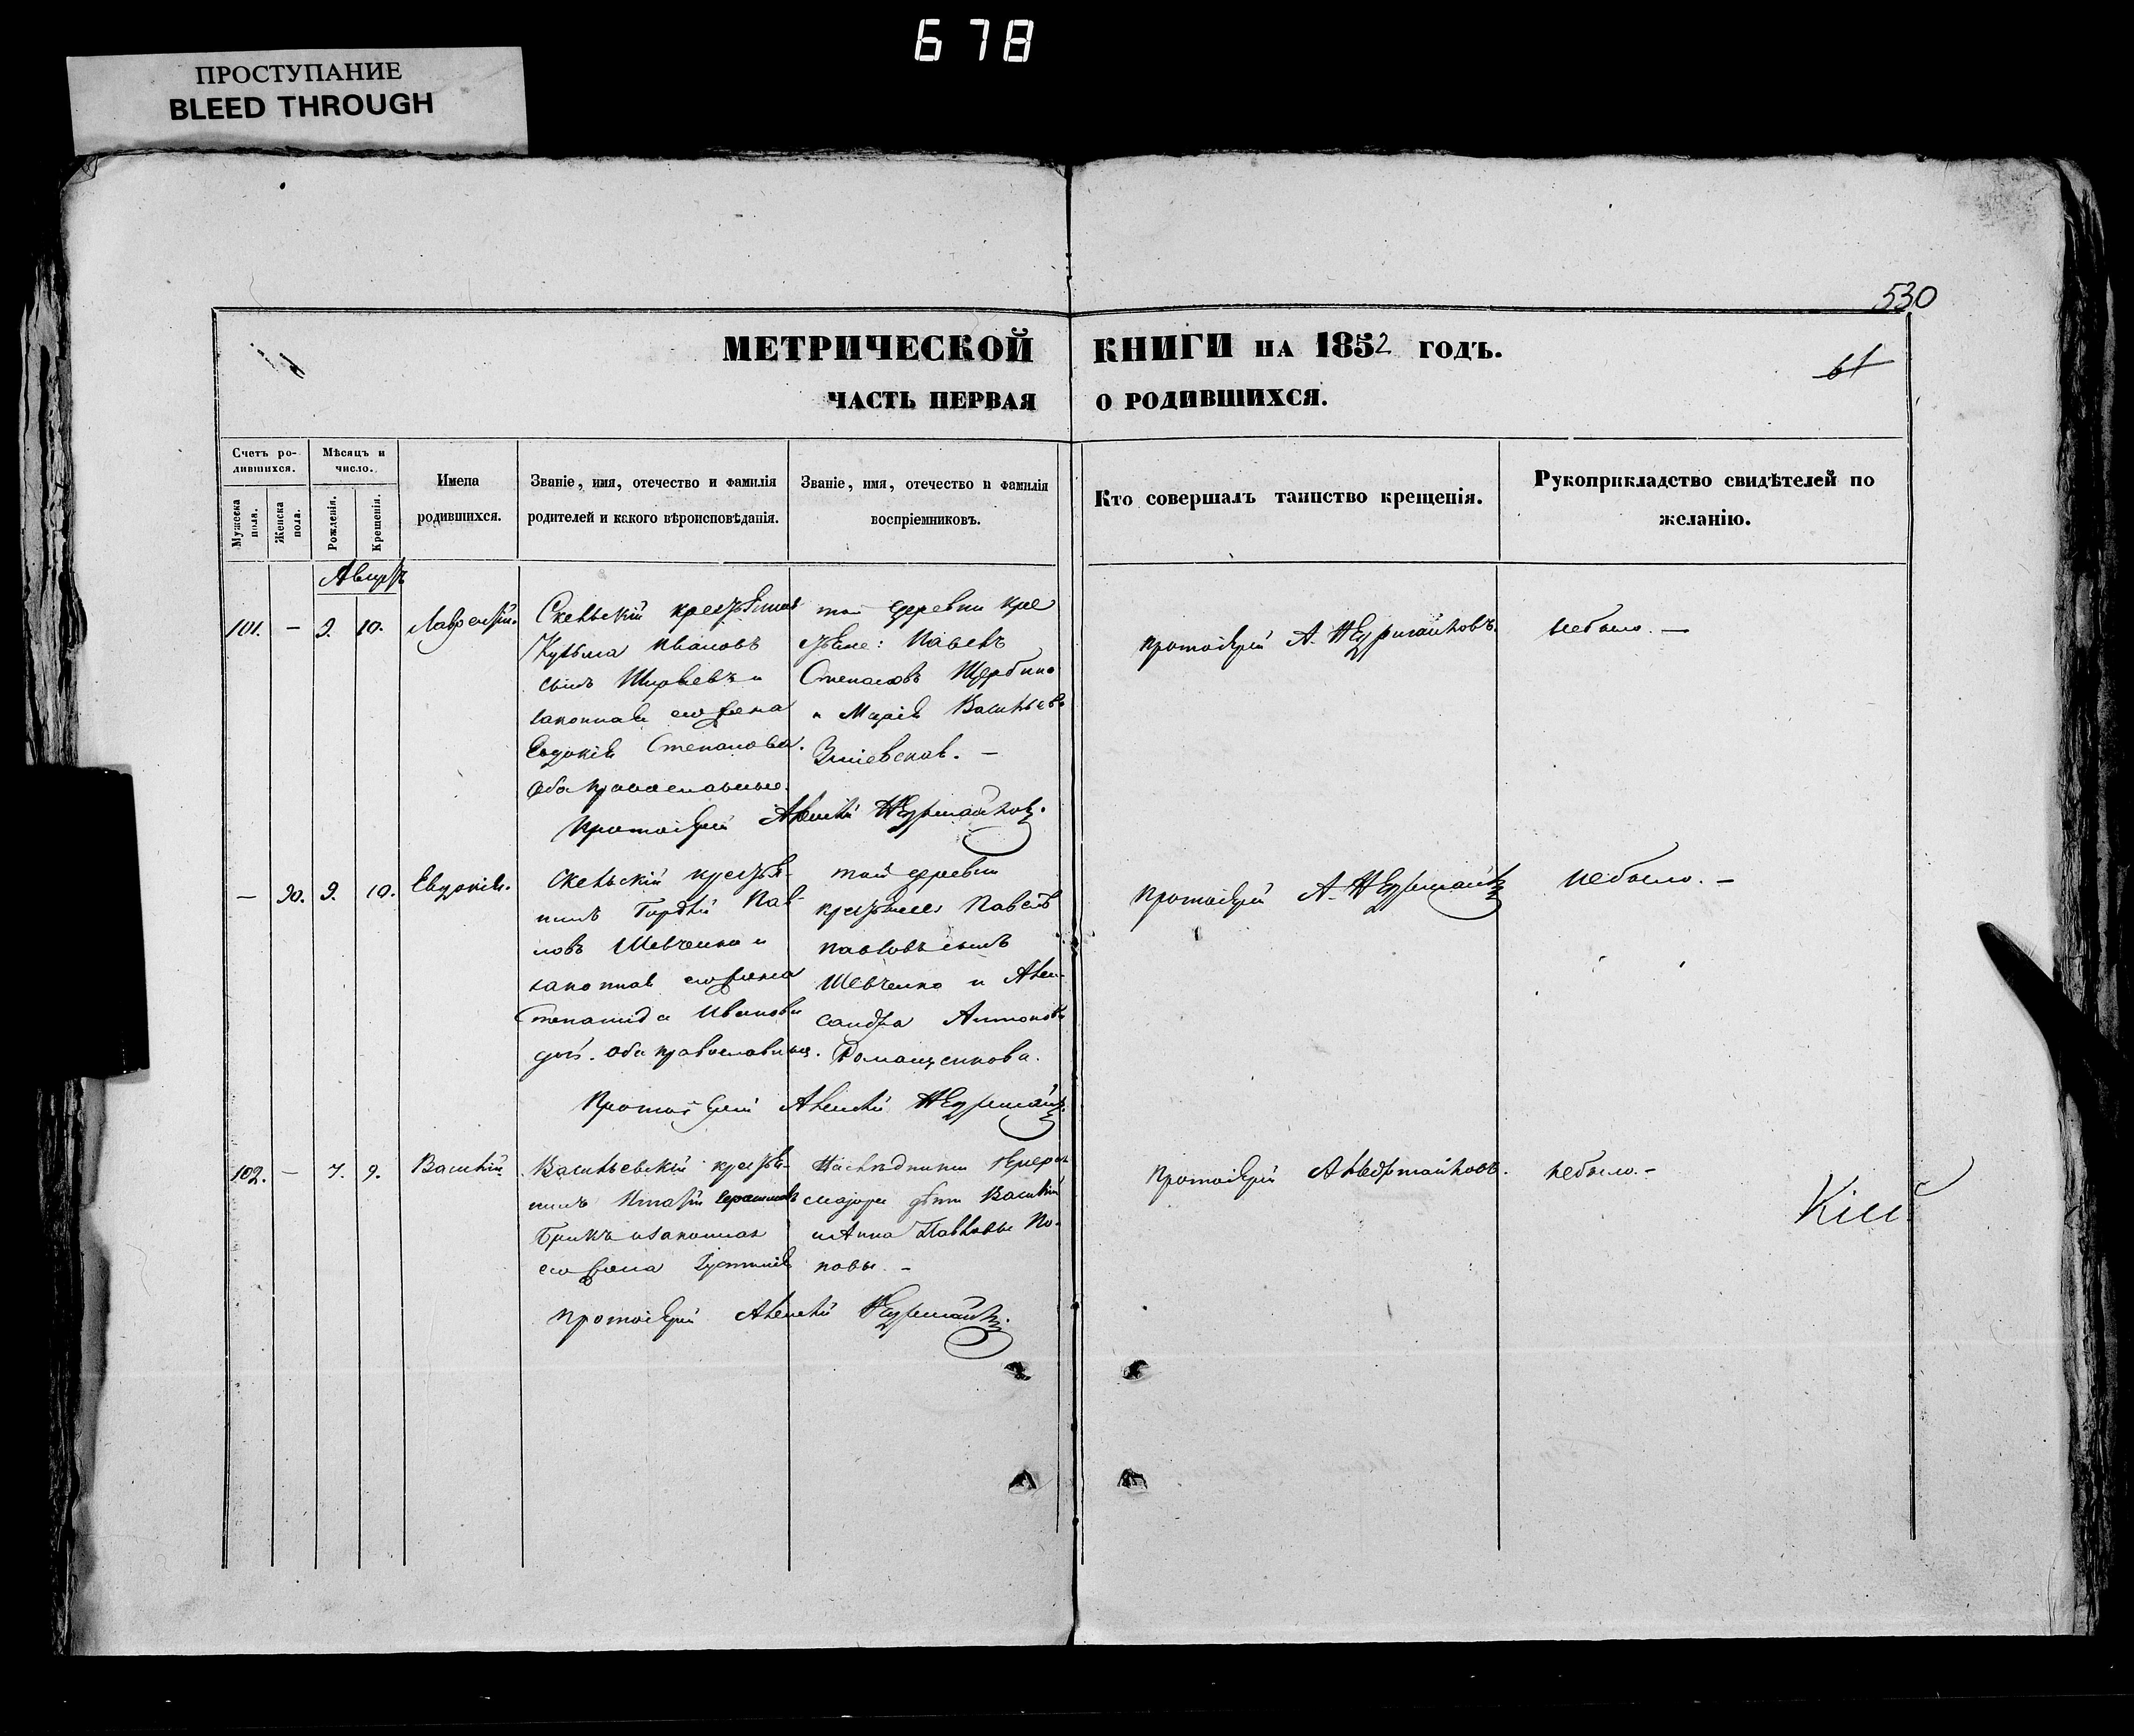 678
ПРОСТУПАНИЕ
BLEED THROUGH
530
МЕТРИЧЕСКОЙ КНИГИ НА 1852 ГОДЪ.
61
ЧАСТЬ ПЕРВАЯ О РОДИВШИХСЯ.
Счетъ ро-
дившихся.
Мужеска
пола.
Женска
пола.
Мѣсяцъ и
число.
Рожденія.
Крещенія.
Имена
родившихся.
Званіе, имя, отечество и фамилія
родителей и какого вѣроисповѣданія.
Званіе, имя, отечество и фамилія
воспріемниковъ.
Кто совершалъ таинство крещенія.
Рукоприкладство свидѣтелей по
желанію.
Августъ
101. — 9. 10. Лаврентій.
Скельскій крестьянинъ
Кузьма Ивановъ
сынъ и
законная его жена
Евдокія Степанова.
Оба православные.
той деревни кре
стьяне: Павелъ
Степановъ Щербина
и Марія Васильева
Протоіерей А.
Небыло. —
Протоіерей Алексѣй
— 90. 9. 10. Евдокія.
Скельскій крестья-
нинъ Гордѣй Пав-
ловъ Шевченко и
законная его жена
Степанида Иванова
дочь. Оба православные.
той деревни
крестьяне Павелъ
Павловъ сынъ
Шевченко и Алек-
сандра Антонова
Романценкова.
Протоіерей А.
Небыло. —
Протоіерей Алексѣй
102. — 7. 9. Василій
Васильевскій крестья-
нинъ
и законная
его жена Іустинія
Наслѣдники Генерал
маіора дѣти Василій
и Анна Павловы По-
повы. —
Протоіерей
небыло. —
Протоіерей Алексѣй